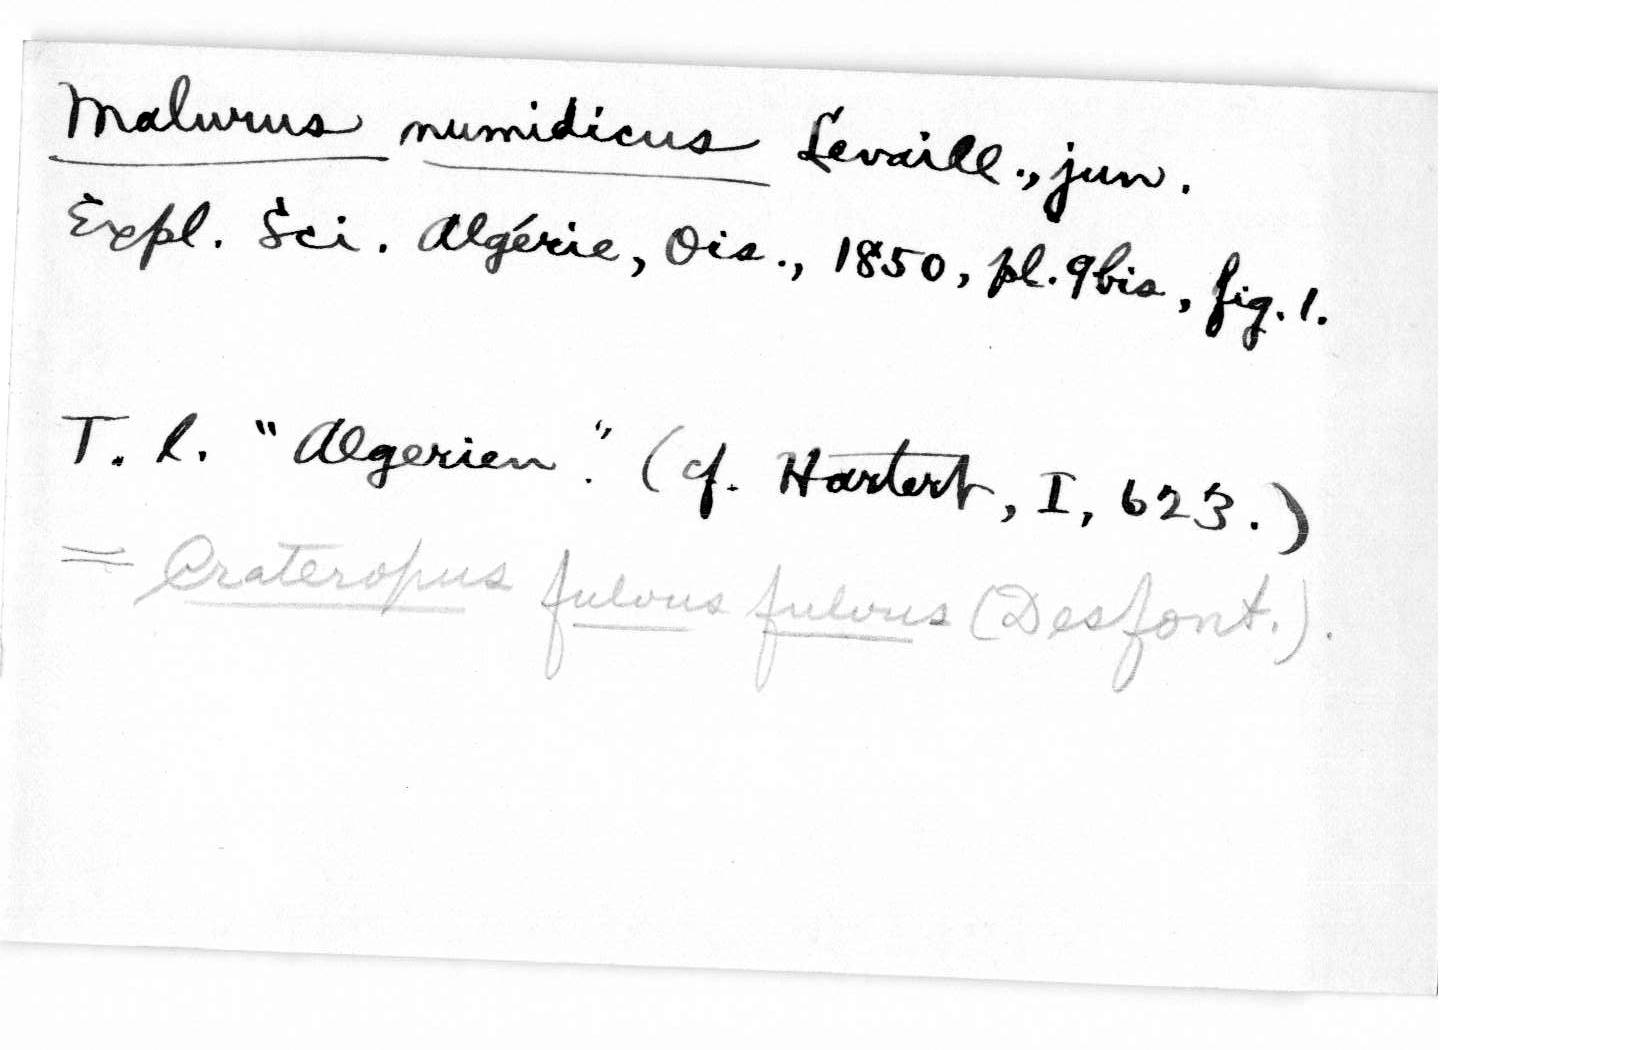 Malurus numidicus Levaill., jun.
Expl. Sci. Algérie, Ois., 1850, pl. 9bis, fig. 1.
T. l. "Algerien." (cf. Hartert, I, 623.)
= Crateropus fulvus fulvus (Desfont.).